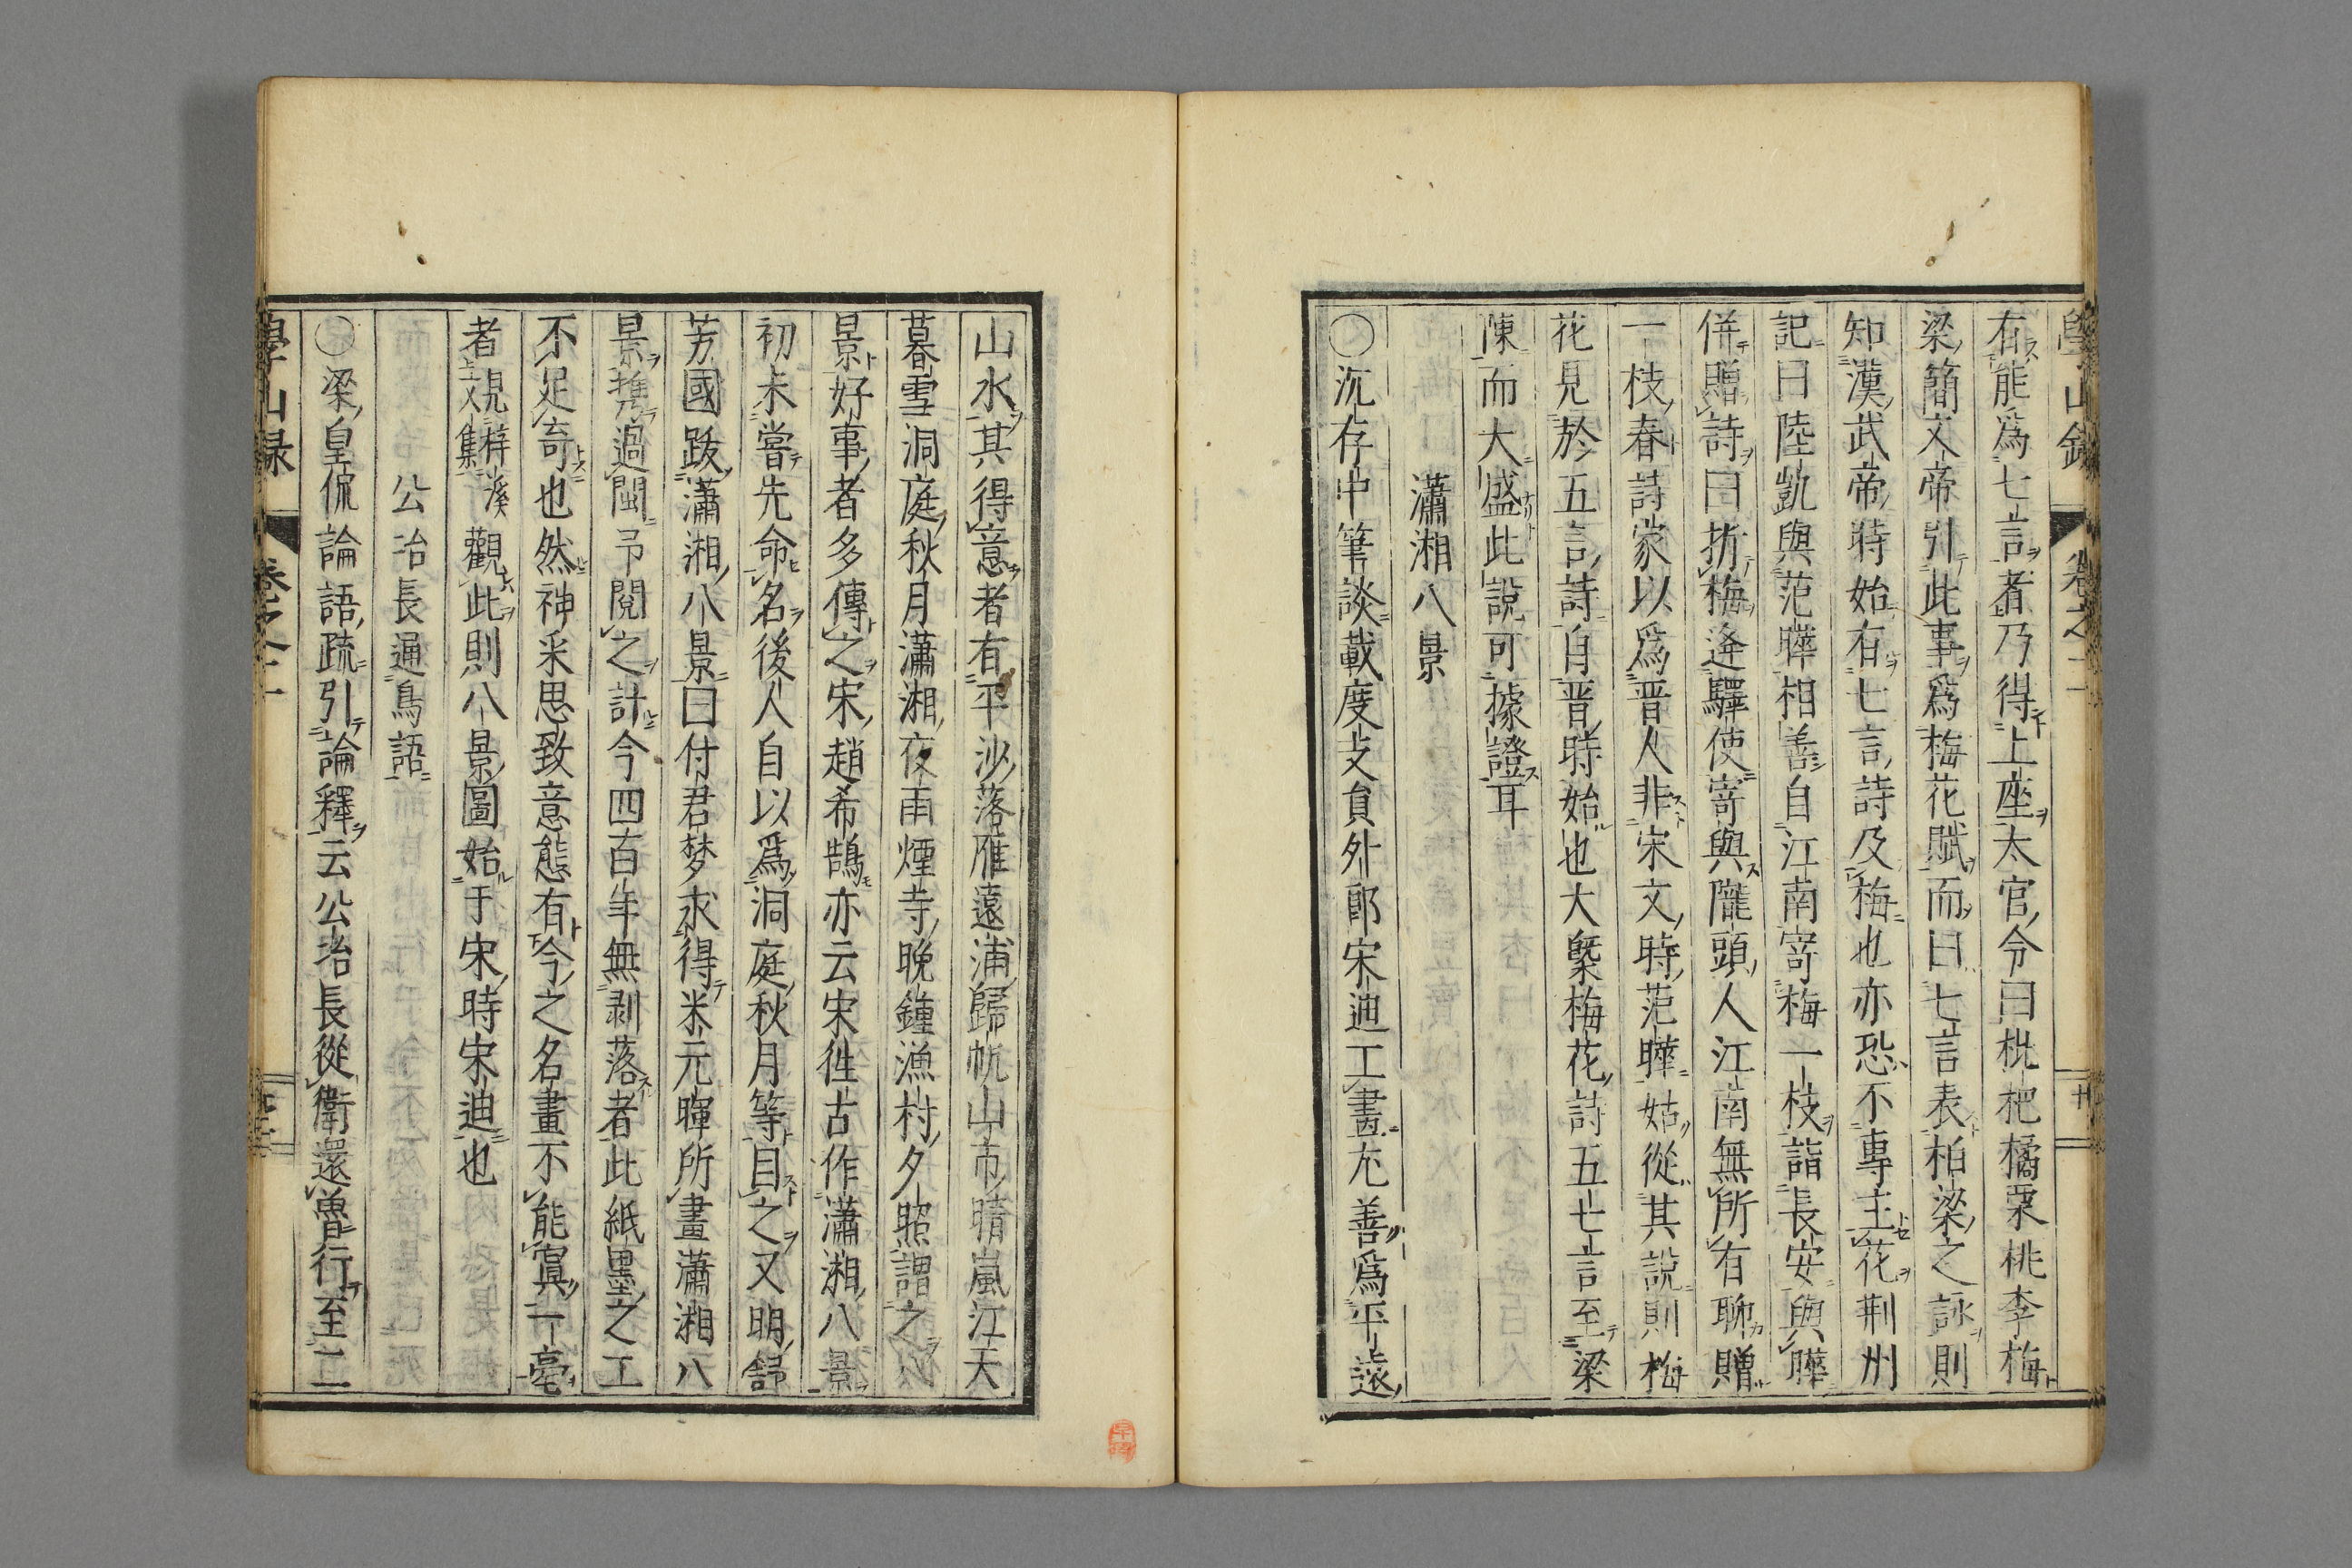 學山錄 卷之二 廿
有能爲七言者乃得上座太官令曰枇杷橘栗桃李梅
梁簡文帝引此事爲梅花賦而曰七言表柏梁之詠則
知漢武帝時始有七言詩及梅也亦恐不專主花荆州
記曰陸凱與范曄相善自江南寄梅一枝詣長安與曄
併贈詩曰折梅逢驛使寄與隴頭人江南無所有聊贈
一枝春詩家以爲晋人非宋文時范曄姑從其說則梅
花見於五言詩自晋時始也大槩梅花詩五七言至梁
陳而大盛此說可據證耳
瀟湘八景
○沉存中筆談載度支員外郎宋迪工畫尢善爲平遠
山水其得意者有平沙落雁遠浦歸帆山市晴嵐江天
暮雪洞庭秋月瀟湘夜雨煙寺晚鐘漁村夕照謂之八
景好事者多傳之宋趙希鵠亦云宋徃古作瀟湘八景
初未嘗先命名後人自以爲洞庭秋月等目之又明舒
芳國跋瀟湘八景曰付君梦求得米元暉所畫瀟湘八
景携過閩予閱之計今四百年無剥落者此紙墨之工
不足奇也然神采思致意態有今之名畫不能寘一毫
者見梓溪文集觀此則八景圖始于宋時宋迪也
公冶長通鳥語
○梁皇侃論語疏引論釋云公冶長從衛還魯行至二
學山録 卷之二